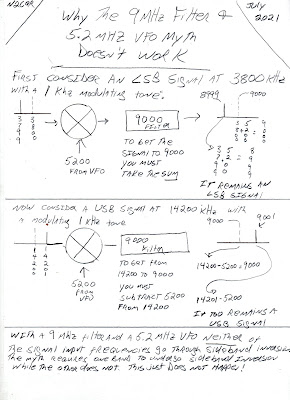 N2CQR
JULY 2021
Why The 9 MHz Filter &
5.2 MHz VFO Myth
Doesn't Work
FIRST CONSIDER AN LSB SIGNAL AT 3800 KHz
WITH A 1 KHz MODULATING TONE.
8999
9000
3799
3800
9000
FILTER
5200
FROM VFO
TO GET THE
SIGNAL TO 9000
YOU MUST
TAKE THE SUM
IT REMAINS AN
LSB SIGNAL
NOW CONSIDER A USB SIGNAL AT 14200 KHz with
a modulating 1 KHz tone
9000
9001
14200
14201
9000
Filter
5200
from
VFO
TO get FROM
14200 to 9000
you must
SUBTRACT 5200
From 14200
14200-5200=9000
14201-5200
IT TOO REMAINS A
USB SIGNAL
WITH A 9 MHz FILTER AND A 5.2 MHz VFO NEITHER OF
THE SIGNAL INPUT FREQUENCIES GO THROUGH SIDEBAND INVERSION
THE MYTH REQUIRES ONE BAND TO UNDERGO SIDEBAND INVERSION
WHILE THE OTHER DOES NOT. THIS JUST DOES NOT HAPPEN!